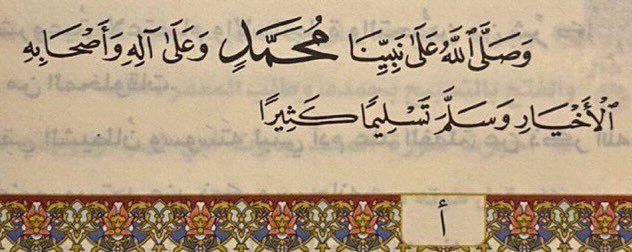 وَصَلَّى ٱللَّهُ عَلَىٰ نَبِيِّنَا مُحَمَّدٍ وَعَلَىٰ آلِهِ وَأَصْحَابِهِ
ٱلْأَخْيَارِ وَسَلَّمَ تَسْلِيمًا كَثِيرًا
أ